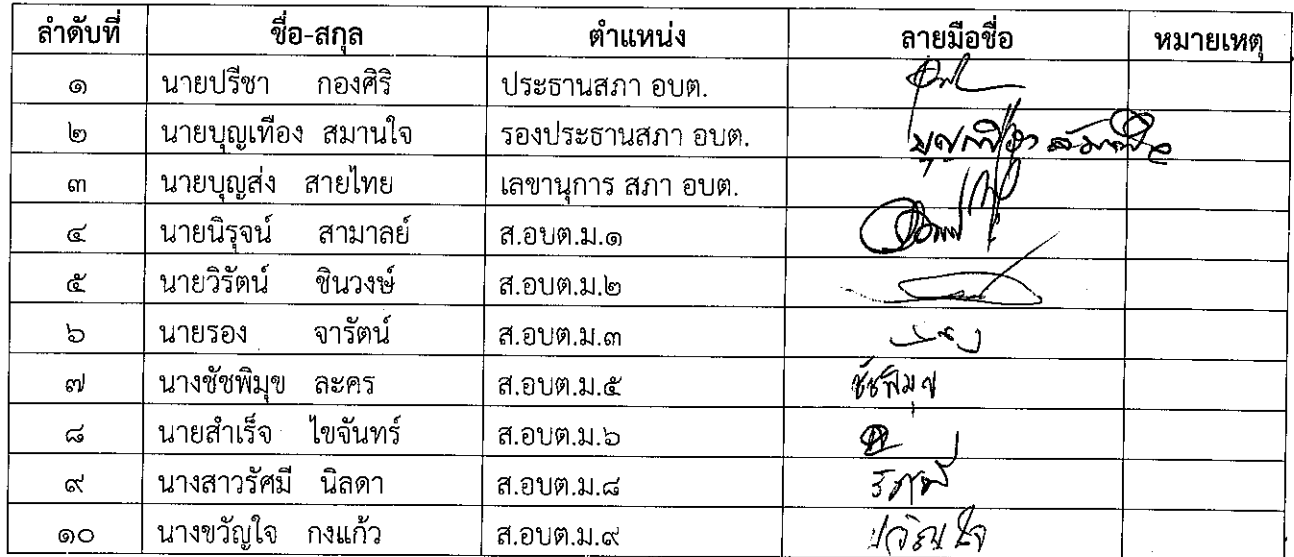 ลำดับที่ ชื่อ-สกุล ตำแหน่ง ลายมือชื่อ หมายเหตุ
๑ นายปรีชา กองศิริ ประธานสภา อบต.
๒ นายบุญเทือง สมานใจ รองประธานสภา อบต. บุญเทือง สมานใจ
๓ นายบุญส่ง สายไทย เลขานุการ สภา อบต.
๔ นายนิรุจน์ สามาลย์ ส.อบต.ม.๑
๕ นายวิรัตน์ ชินวงษ์ ส.อบต.ม.๒
๖ นายรอง จารัตน์ ส.อบต.ม.๓
๗ นางชัชพิมุข ละคร ส.อบต.ม.๕ ชัชพิมุข
๘ นายสำเร็จ ไขจันทร์ ส.อบต.ม.๖
๙ นางสาวรัศมี นิลดา ส.อบต.ม.๘ รัศมี
๑๐ นางขวัญใจ กงแก้ว ส.อบต.ม.๙ ขวัญใจ